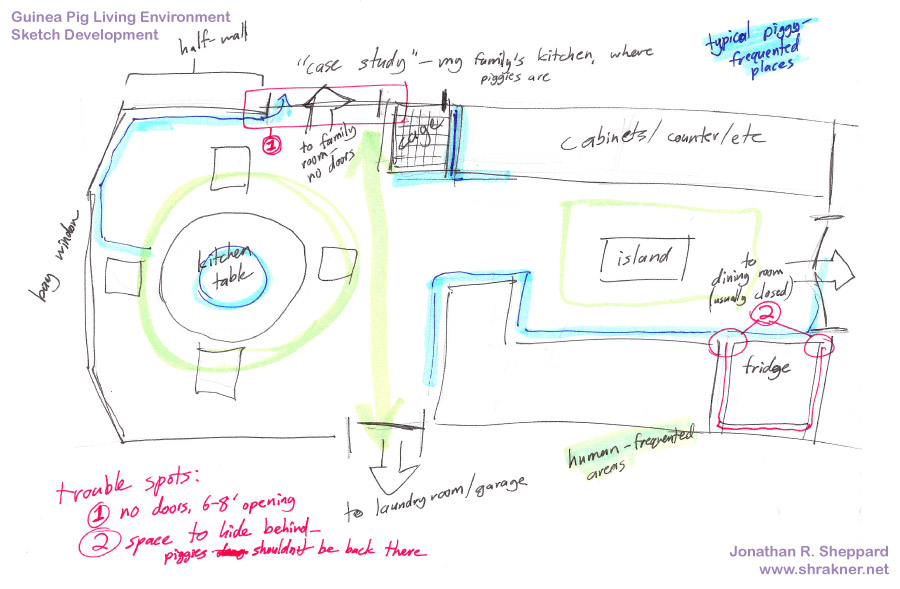 Guinea Pig Living Environment
Sketch Development
half-wall
"case study" – my family's kitchen, where
piggies are
typical piggy-
frequented
places
1
to family
room –
no doors
cage
cabinets/counter/etc
bay window
kitchen
table
island
to
dining room
(usually closed)
2
fridge
human-frequented
areas
to laundry room/garage
trouble spots:
1 no doors, 6-8' opening
2 space to hide behind –
piggies shouldn't be back there
Jonathan R. Sheppard
www.shrakner.net